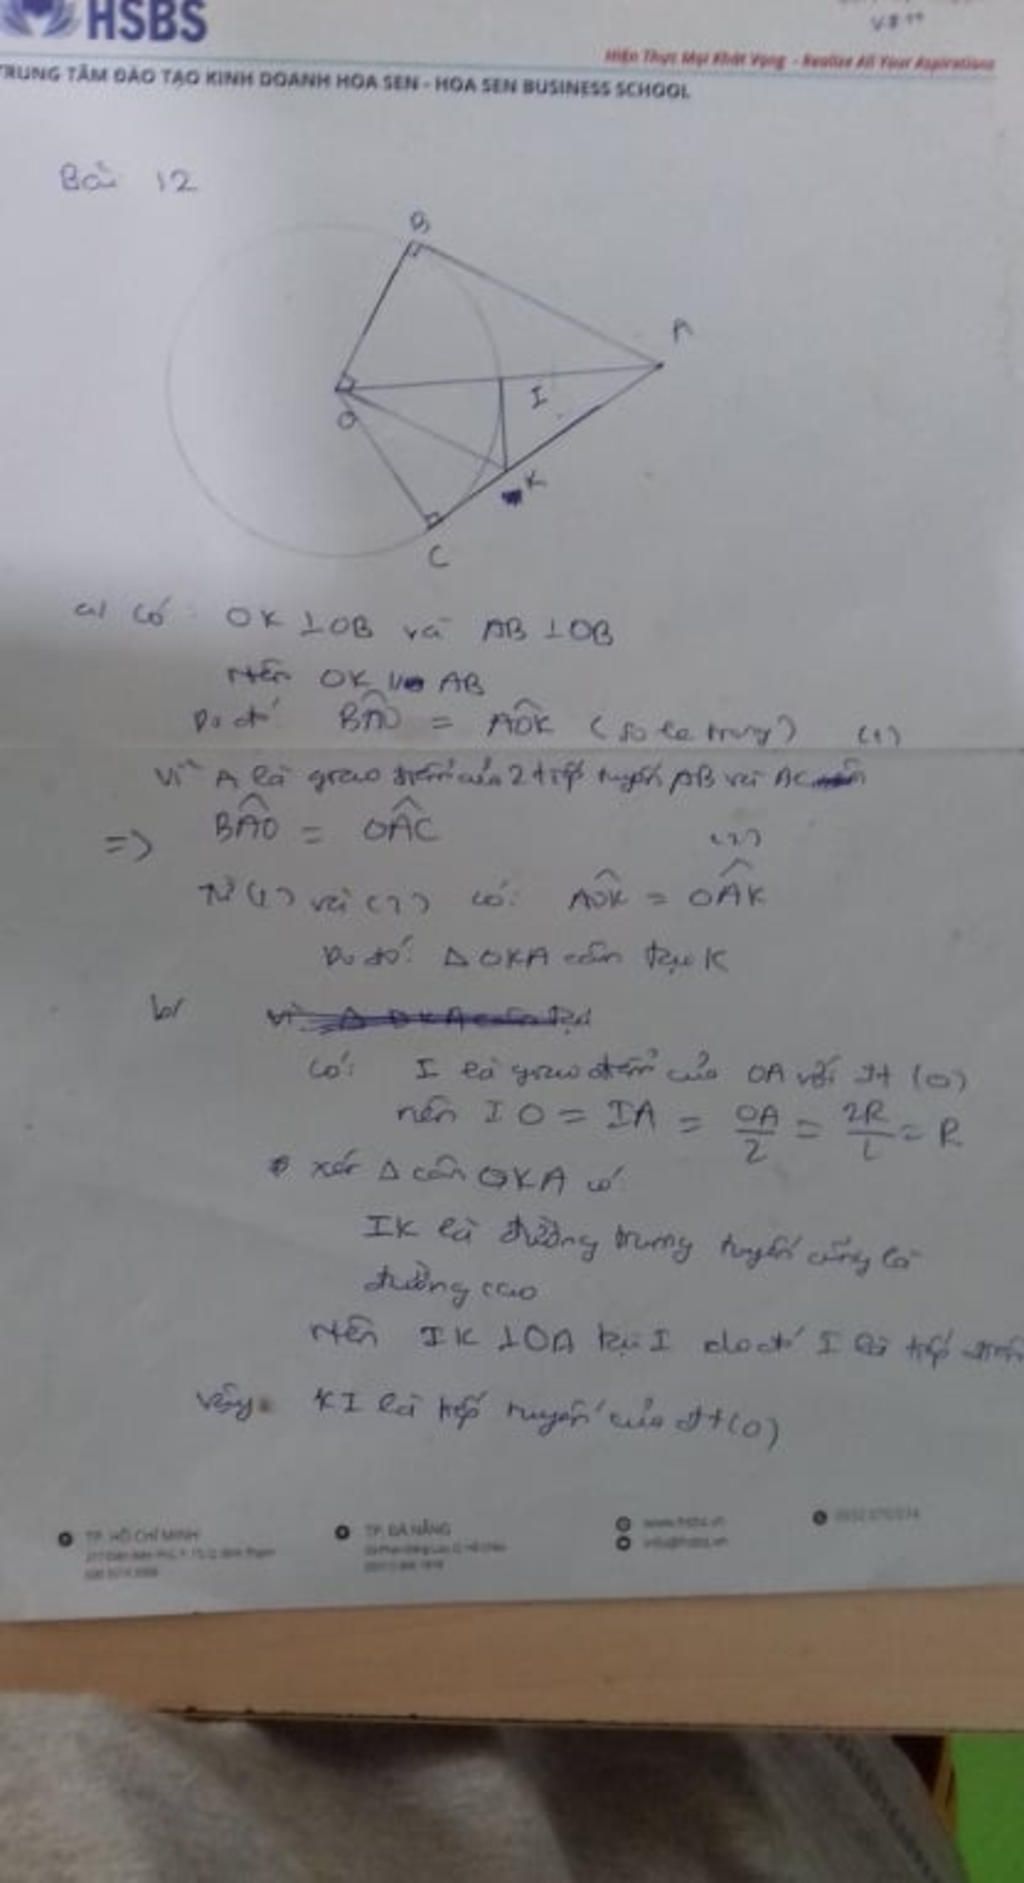 HSBS
Hiện Thực Mọi Khát Vọng - Realize All Your Aspirations
TRUNG TÂM ĐÀO TẠO KINH DOANH HOA SEN - HOA SEN BUSINESS SCHOOL
Bài 12
B
A
I
O
K
C
a) Có: OK ⊥ OB và AB ⊥ OB
Nên OK // AB
Do đó BÂO = AÔK (so le trong) (1)
Vì A là giao điểm của 2 tiếp tuyến AB và AC
=> BÂO = OÂC (2)
Từ (1) và (2) có: AÔK = OÂK
Do đó: Δ OKA cân tại K
b/
Có: I là giao điểm của OA với đt (O)
nên IO = IA = OA/2 = 2R/2 = R
xét Δ cân OKA có
IK là đường trung tuyến cũng là
đường cao
Nên IK ⊥ OA tại I do đó I là tiếp điểm
Vậy: KI là tiếp tuyến của đt (O)
TP. HỒ CHÍ MINH
TP. ĐÀ NẴNG
www.hsbs.vn
info@hsbs.vn